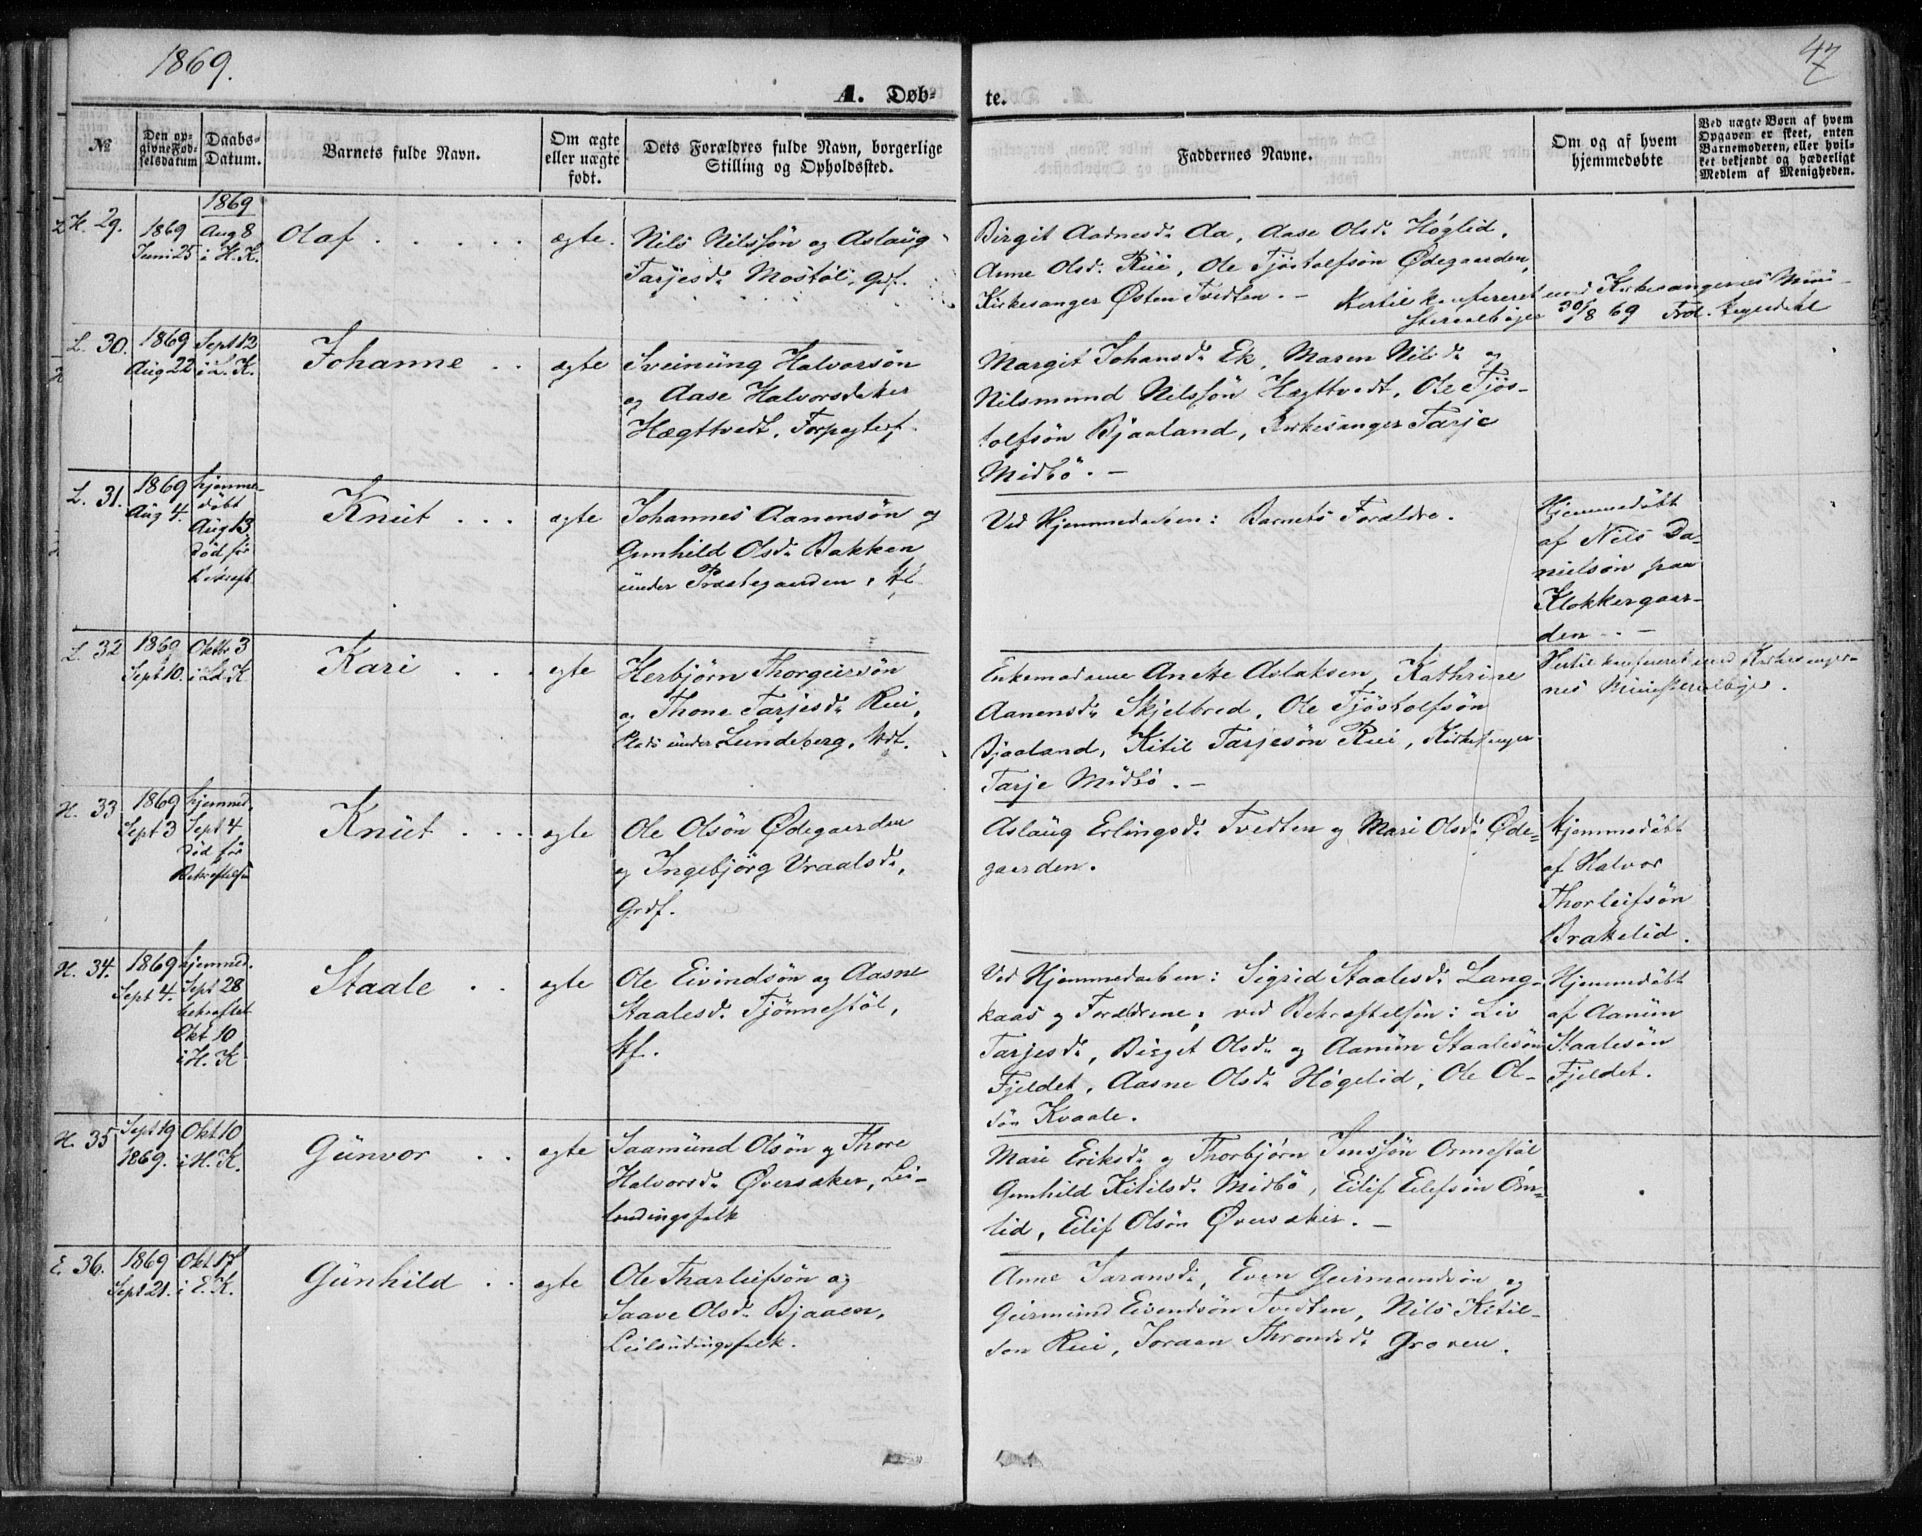 1869.
47
A. Døb-
te.
№
Den op-
givne Fød-
selsdatum
Daabs-
Datum.
Barnets fulde Navn.
Om ægte
eller uægte
født.
Dets Forældres fulde Navn, borgerlige
Stilling og Opholdssted.
Faddernes Navne.
Om og af hvem
hjemmedøbte
Ved uægte Børn af hvem
Opgaven er skeet, enten
Barnemoderen, eller hvil-
ket bekjendt og hæderligt
Medlem af Menigheden.
H. 29.
1869
Juni 25
1869
Aug 8
i H. K.
Olaf . . . . .
ægte.
Nils Nilssön og Aslaug
Tarjesd. Mostöl, Grf.
Birgit Aadnesd. Aa, Aase Olsd. Høglid,
Anne Olsd. Rui, Ole Tjöstolfsön Ødegaarden,
Kirkesanger Østen Tvedten. —
Hertil konfereret med Kirkesangernes Mini-
sterialbøger 30/8 69
L. 30.
1869
Aug 22
Sept 12
i L. K.
Johanne . .
ægte
Sveinung Halvorsön
og Aase Halvorsd.
Hægttvedt, Forpagterf.
Margit Johansd. Ek, Maren Nilsd. og
Nilsmund Nilssön Hægttvedt, Ole Tjös-
tolfsön Bjaaland, Kirkesanger Tarje
Midbö. —
L. 31.
1869
Aug 4.
hjemme-
døbt
Aug 13
död för
Knut . . .
ægte
Johannes Aanensön og
Gunhild Olsd. Bakken
under Præstegaarden,
Ved Hjemmedaaben: Barnets Forældre.
Hjemmedöbt
af Nils Da-
nielsön paa
Klokkergaar-
den. —
L. 32
1869
Sept 10.
Oktbr 3
i Ld. K
Kari . . .
egte
Herbjörn Thorgeirsön
og Thone Tarjesd. Rui,
Plads under Lundeberg,
Enkemadame Anette Aslaksen, Kathrine
Aanensd. Skjelbred, Ole Tjöstolfsön
Bjaaland, Kitil Tarjesön Rui, Kirkesanger
Tarje Midbö. —
Hertil konfereret med Kirkesanger-
nes Ministerialbøger.
H. 33
1869
Sept 3
hjemmed.
Sept 4
död för
Bekræftelsen
Knut . . .
egte
Ole Olsön Ødegaarden
og Ingebjörg Vraalsd.,
Grdf.
Aslaug Erlingsd. Tvedten og Mari Olsd. Øde-
gaarden.
Hjemmedöbt
af Halvor
Thorleifsön
Brakelid.
H. 34.
1869
Sept 4.
hjemmed.
Sept 28
bekræftet
Okt 10
i H. K
Staale . .
egte
Ole Eivindsön og Aasne
Staalesd. Tjönnestöl,
Hf.
Ved Hjemmedaaben: Sigrid Staalesd. Lang-
kaas og Forældrene; ved Bekræftelsen: Liv
Tarjesd., Birget Olsd. og Aanun Staalesön
Fjeldet, Aasne Olsd. Høgelid, Ole Ol-
sön Kvaale.
Hjemmedöbt
af Aanun
Staalesön
Fjeldet.
H. 35
Sept 19
1869.
Okt 10
i H. K.
Gunvor . .
egte
Saamund Olsön og Thore
Halvorsd. Øversaker, Lei-
lændingsfolk
Mari Eriksd. og Thorbjörn Jenssön Ormestöl
Gunhild Kitilsd. Midbö, Eilif Eilefsön Öm-
lid, Eilif Olsön Øversaker. —
E. 36.
1869
Sept 21.
Okt 17
i E. K.
Gunhild . .
egte
Ole Tharleifsön og
Saave Olsd. Bjaaen,
Leilændingsfolk.
Anne Taransd., Even Geirmundsön og
Geirmund Eivendsön Tvedten, Nils Kitil-
son Rui, Joraan Throndsd. Groven.